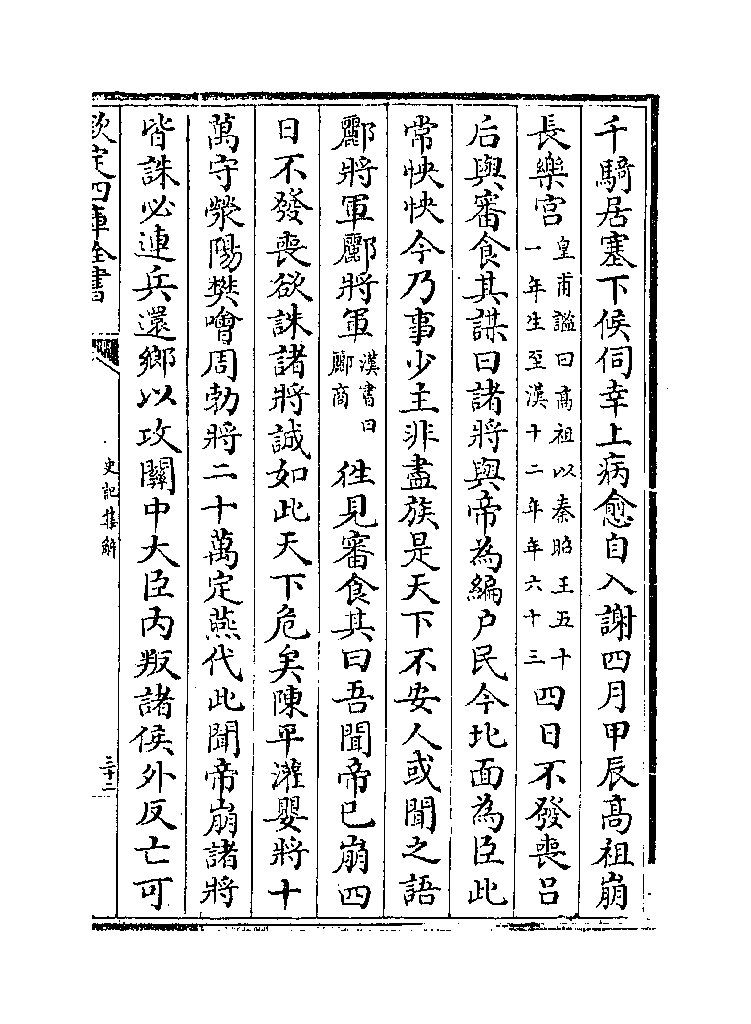 千騎居塞下候伺幸上病愈自入謝四月甲辰髙祖崩
長樂宫皇甫謐曰髙祖以秦昭王五十一年生至漢十二年年六十三四日不發喪吕
后與審食其謀曰諸將與帝為編户民今北面為臣此
常怏怏今乃事少主非盡族是天下不安人或聞之語
酈將軍酈將軍漢書曰酈商徃見審食其曰吾聞帝已崩四
日不發喪欲誅諸將誠如此天下危矣陳平灌嬰將十
萬守滎陽樊噲周勃將二十萬定燕代此聞帝崩諸將
皆誅必連兵還鄉以攻闗中大臣内叛諸侯外反亡可
欽定四庫全書
史記集解
三十二